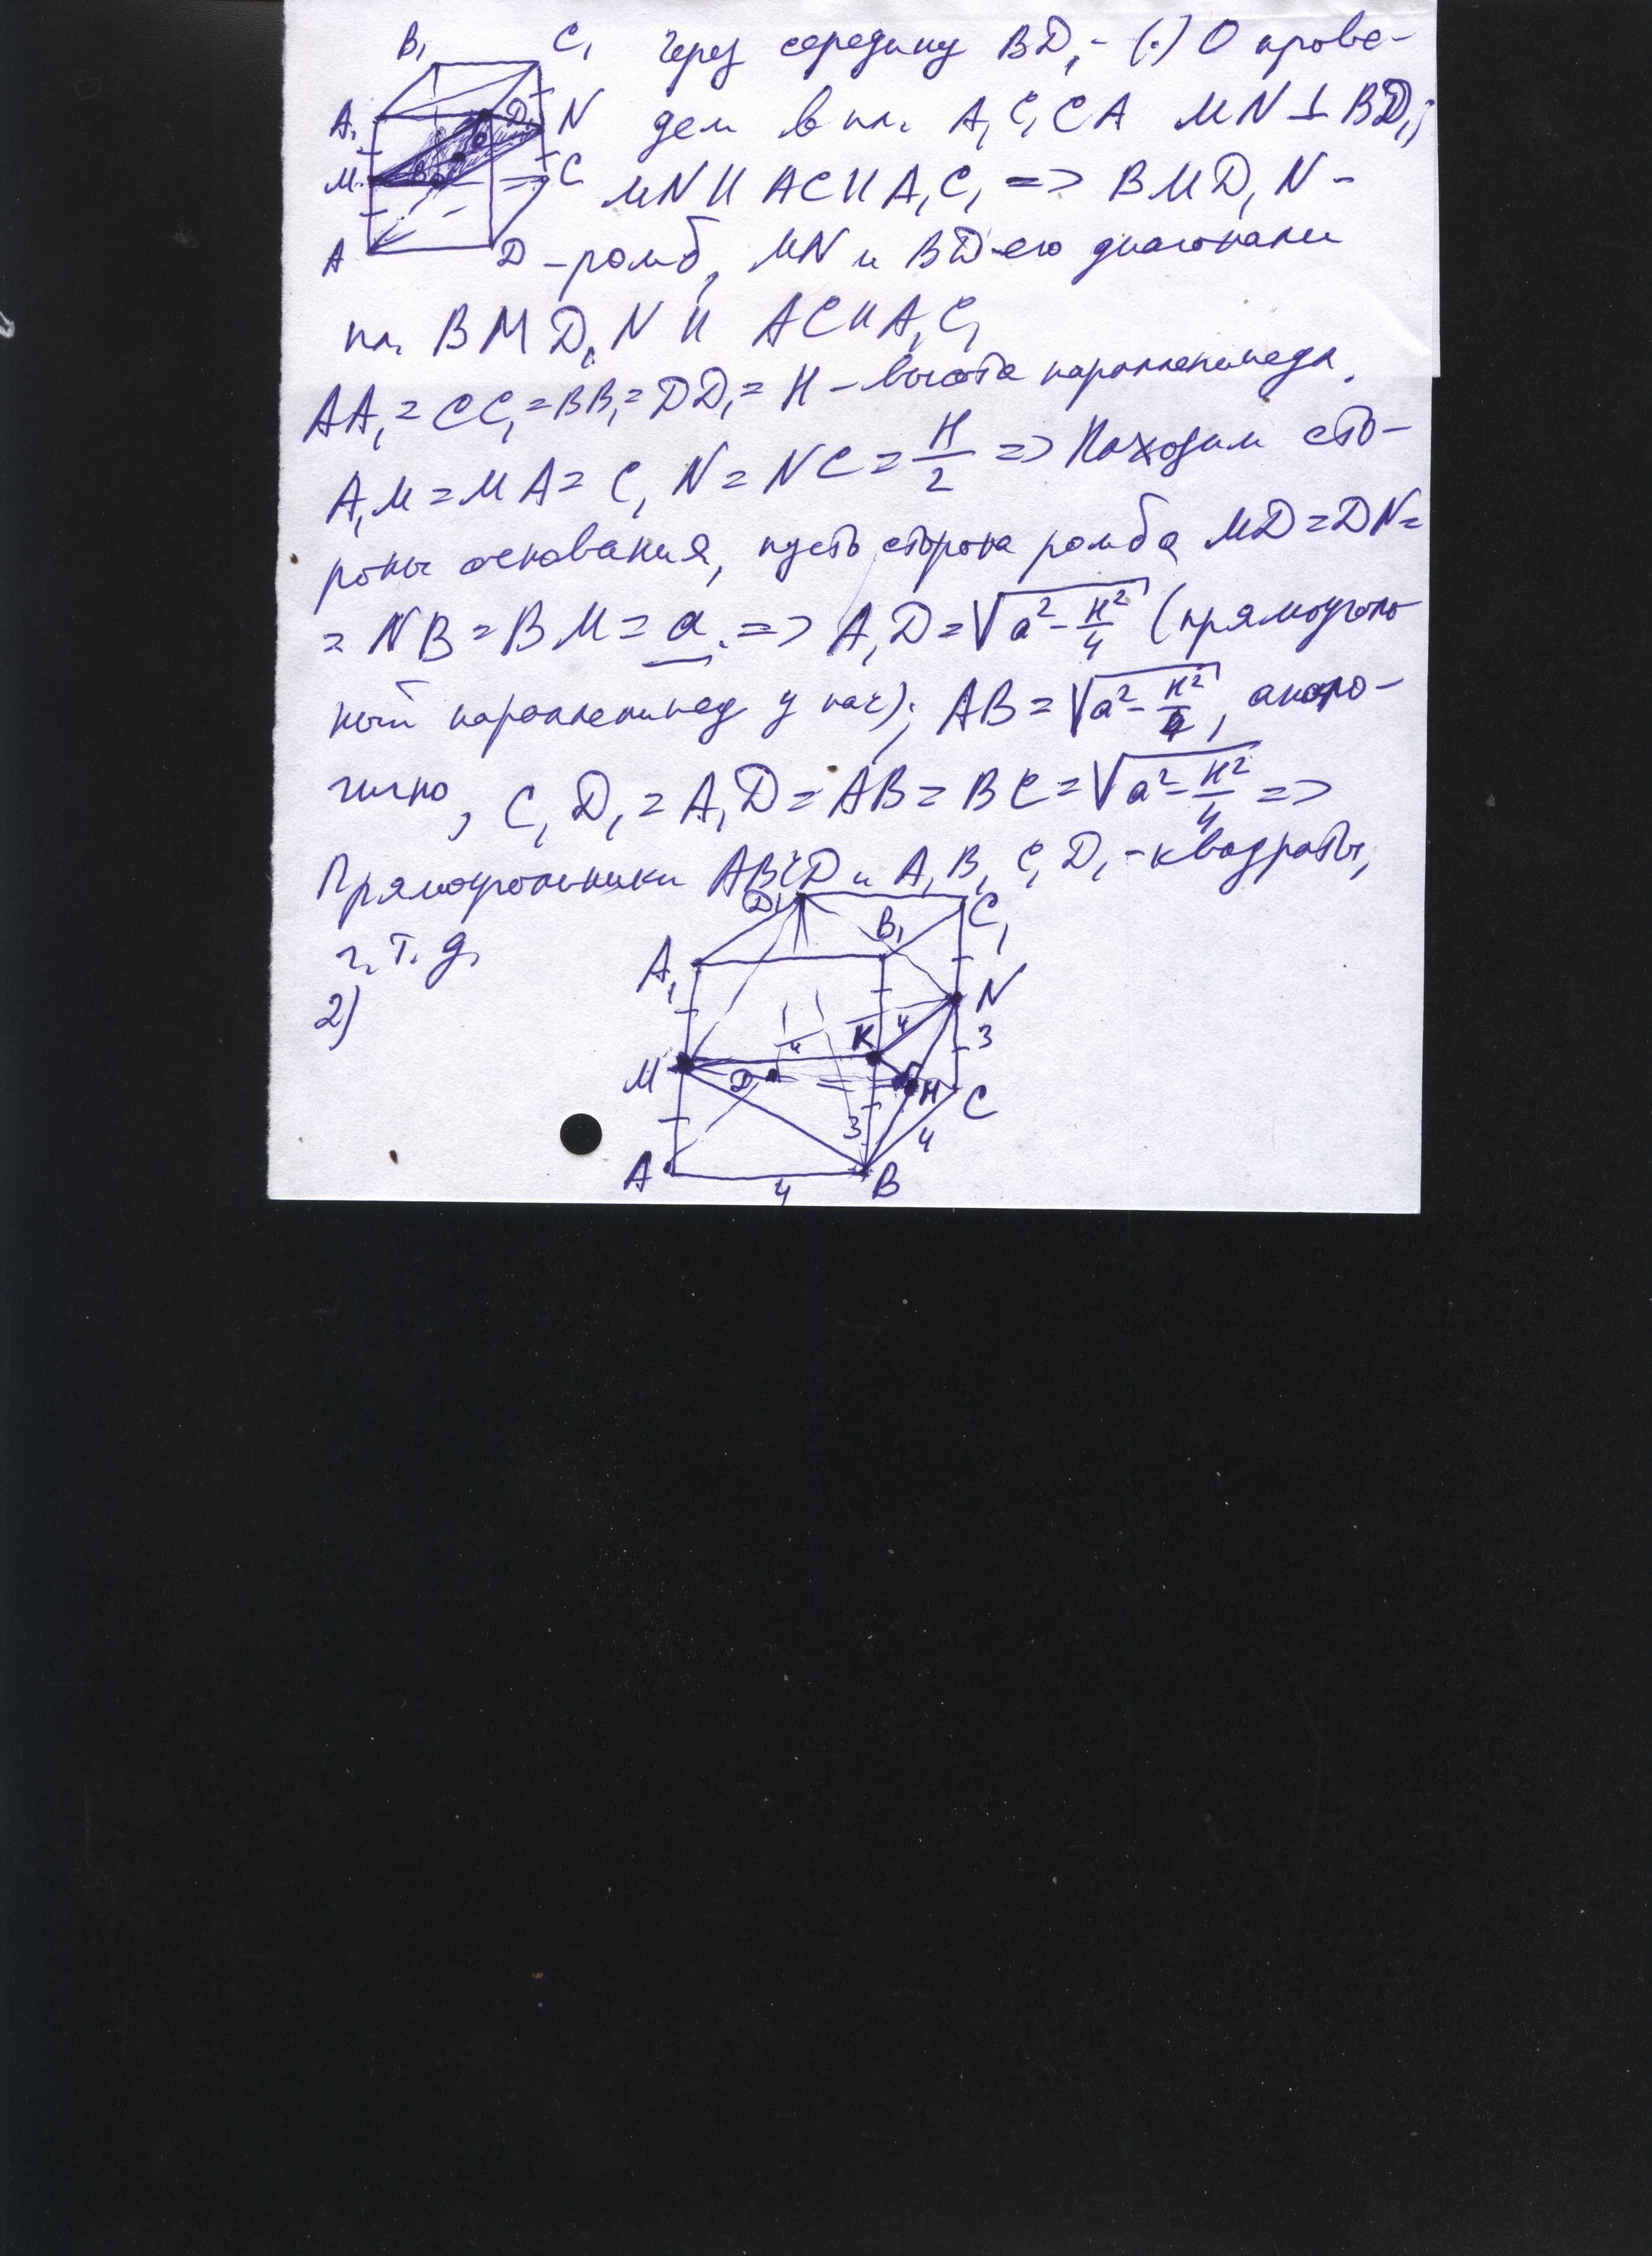 B₁ C₁ Через середину BD₁ - (·) O прове-
A₁ D₁ N дем в пл. A₁C₁CA MN ⊥ BD₁;
M B O C MN II AC II A₁C₁ => BMD₁N -
A D - ромб, MN и BD - его диагонали
пл. BMD₁N II AC II A₁C₁
AA₁ = CC₁ = BB₁ = DD₁ = H - высота параллелепипеда.
A₁M = MA = C₁N = NC = H/2 => Находим сто-
роны основания, пусть сторона ромба MD = DN =
= NB = BM = a. => A₁D = √(a² - H²/4) (прямоуголь-
ный параллелепипед у нас); AB = √(a² - H²/4), анало-
гично, C₁D₁ = A₁D = AB = BC = √(a² - H²/4) =>
Прямоугольники ABCD и A₁B₁C₁D₁ - квадраты,
ч.т.д.
2)
D₁ B₁ C₁
A₁
N
4 K 4 3
M D H C
3 4
A 4 B